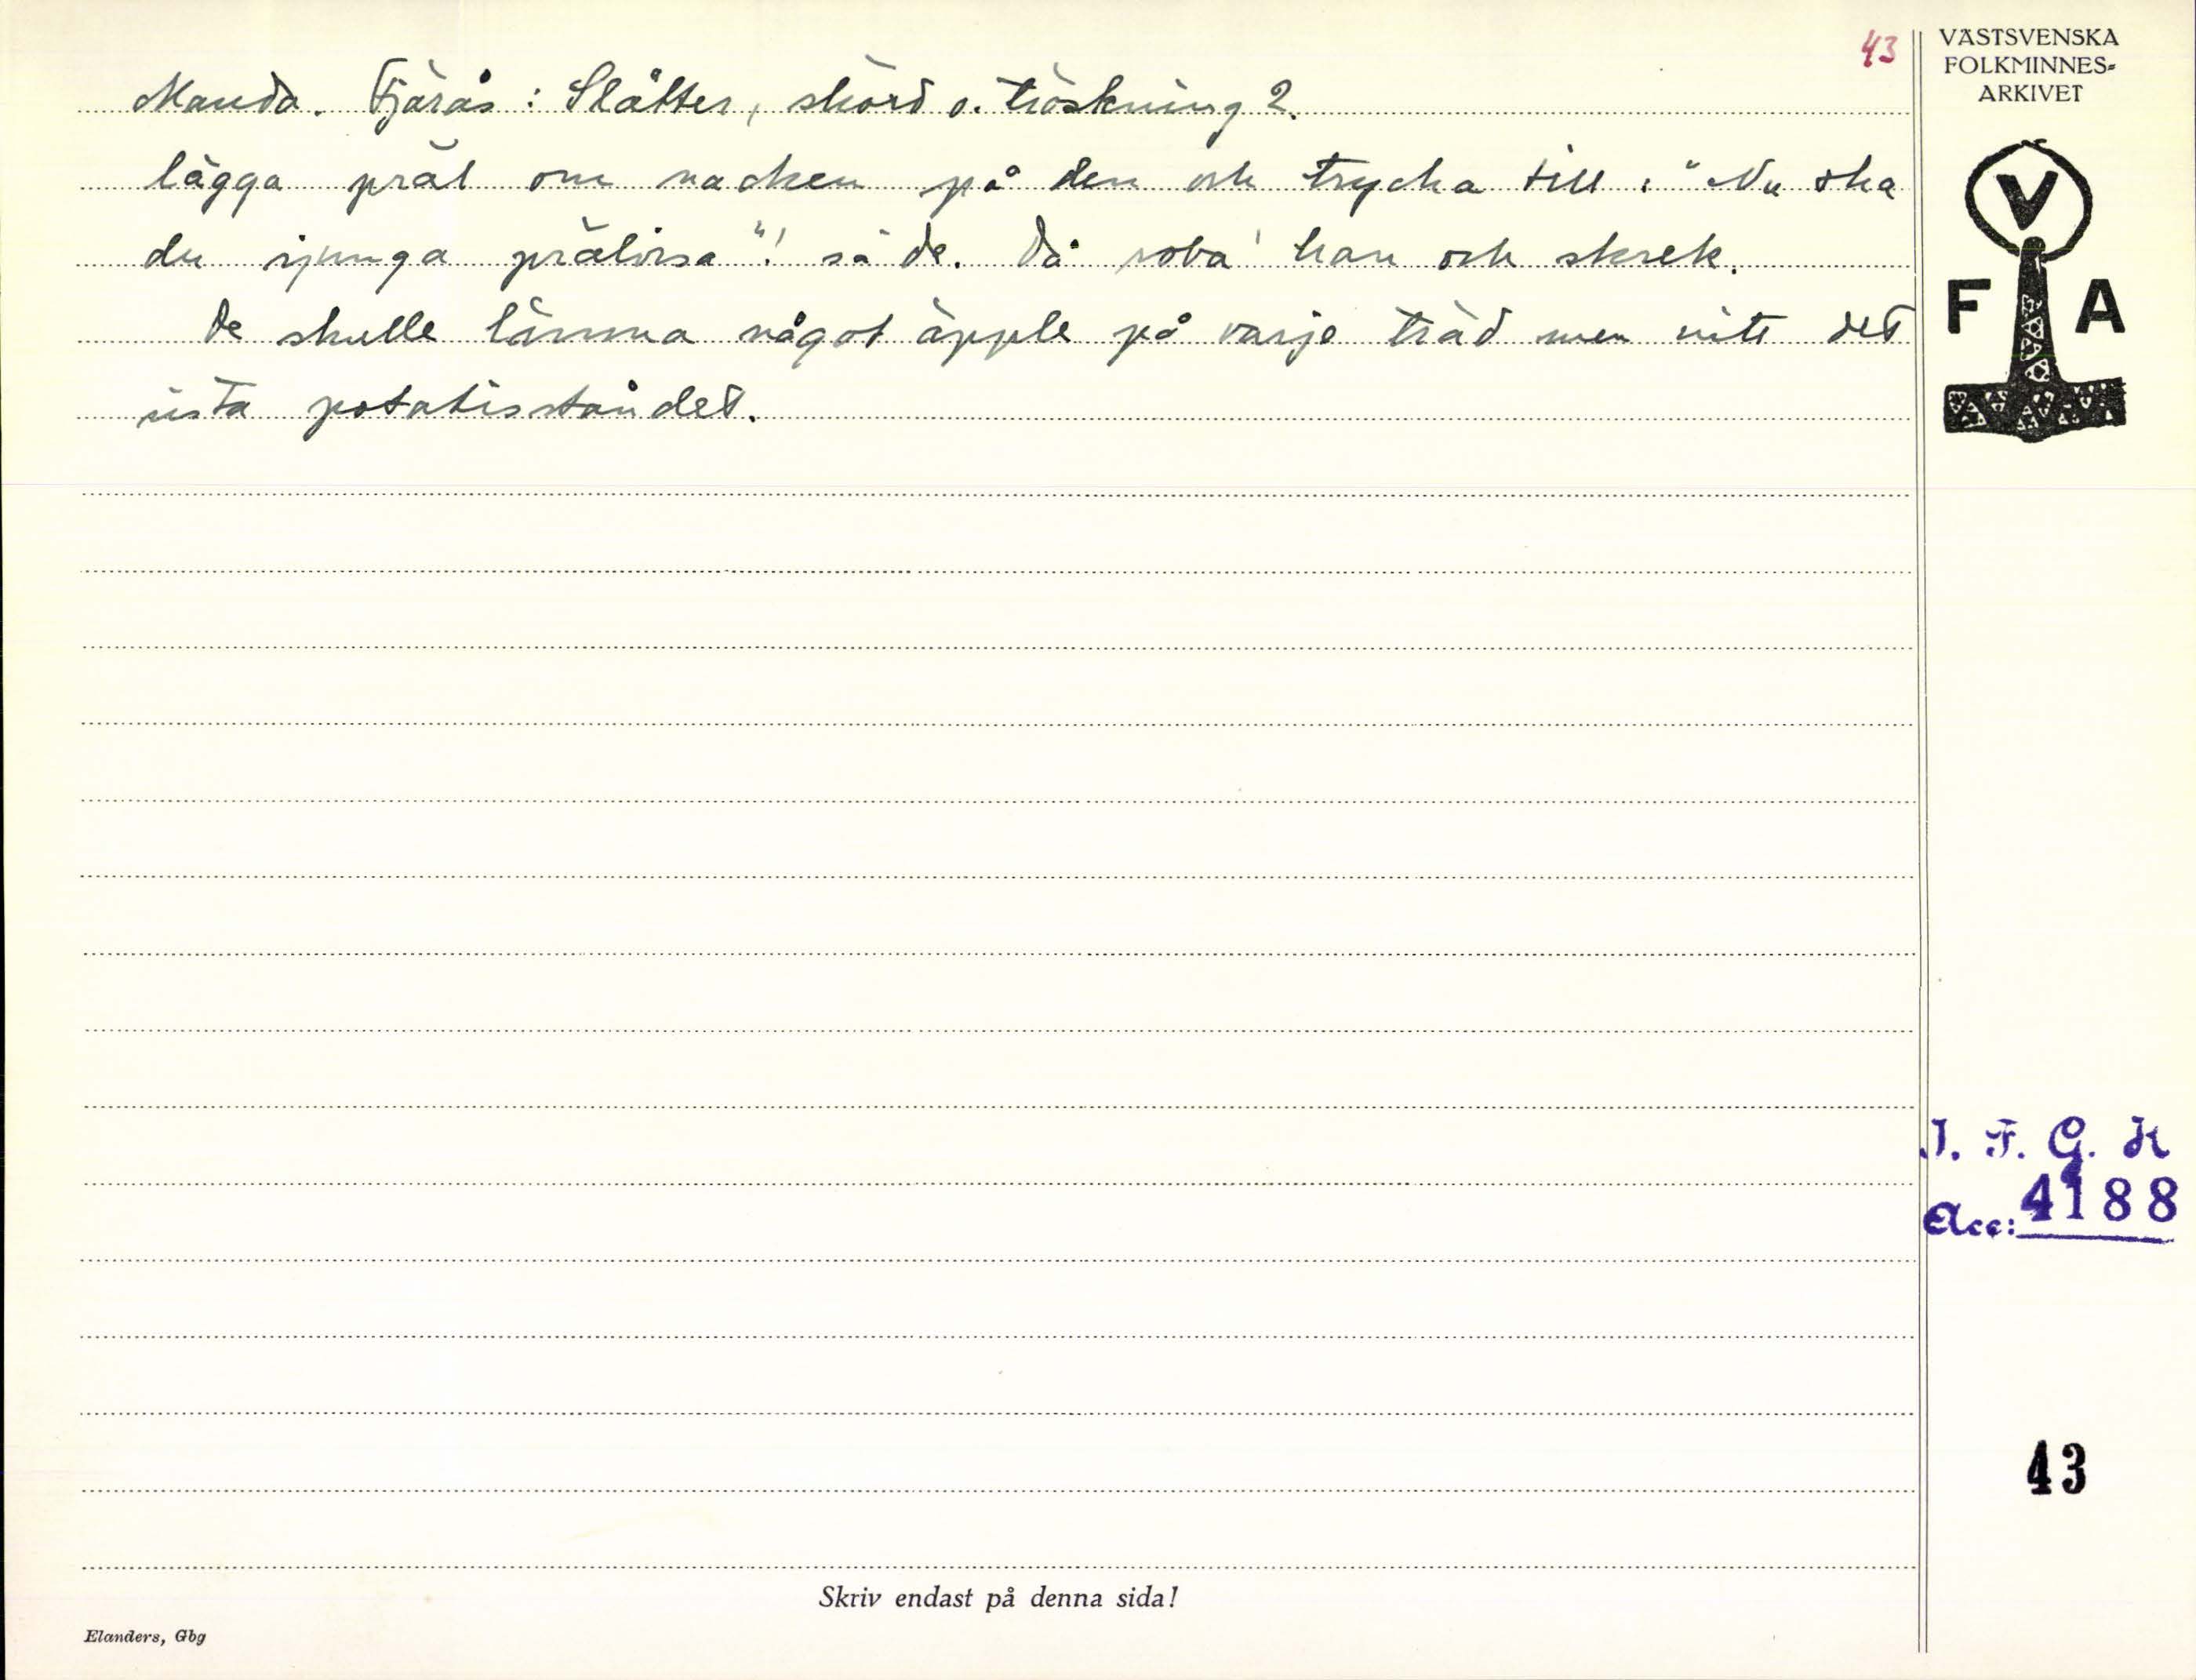 43
Manda. Fjärås: Slåtter, skörd o. tröskning 2.
lägga präl om nacken på den och trycka till: "Nu ska
du sjunga prälvisa"! sa de. Då roba' han och skrek.
De skulle lämna något äpple på varje träd men inte det
sista potatisståndet.
VÄSTSVENSKA
FOLKMINNES-
ARKIVET
V
F A
I. F. G. H
Acc: 4188
43
Skriv endast på denna sida!
Elanders, Gbg